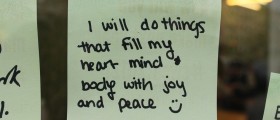 I will do things
that fill my
heart mind &
body with joy
and peace
rk
l.